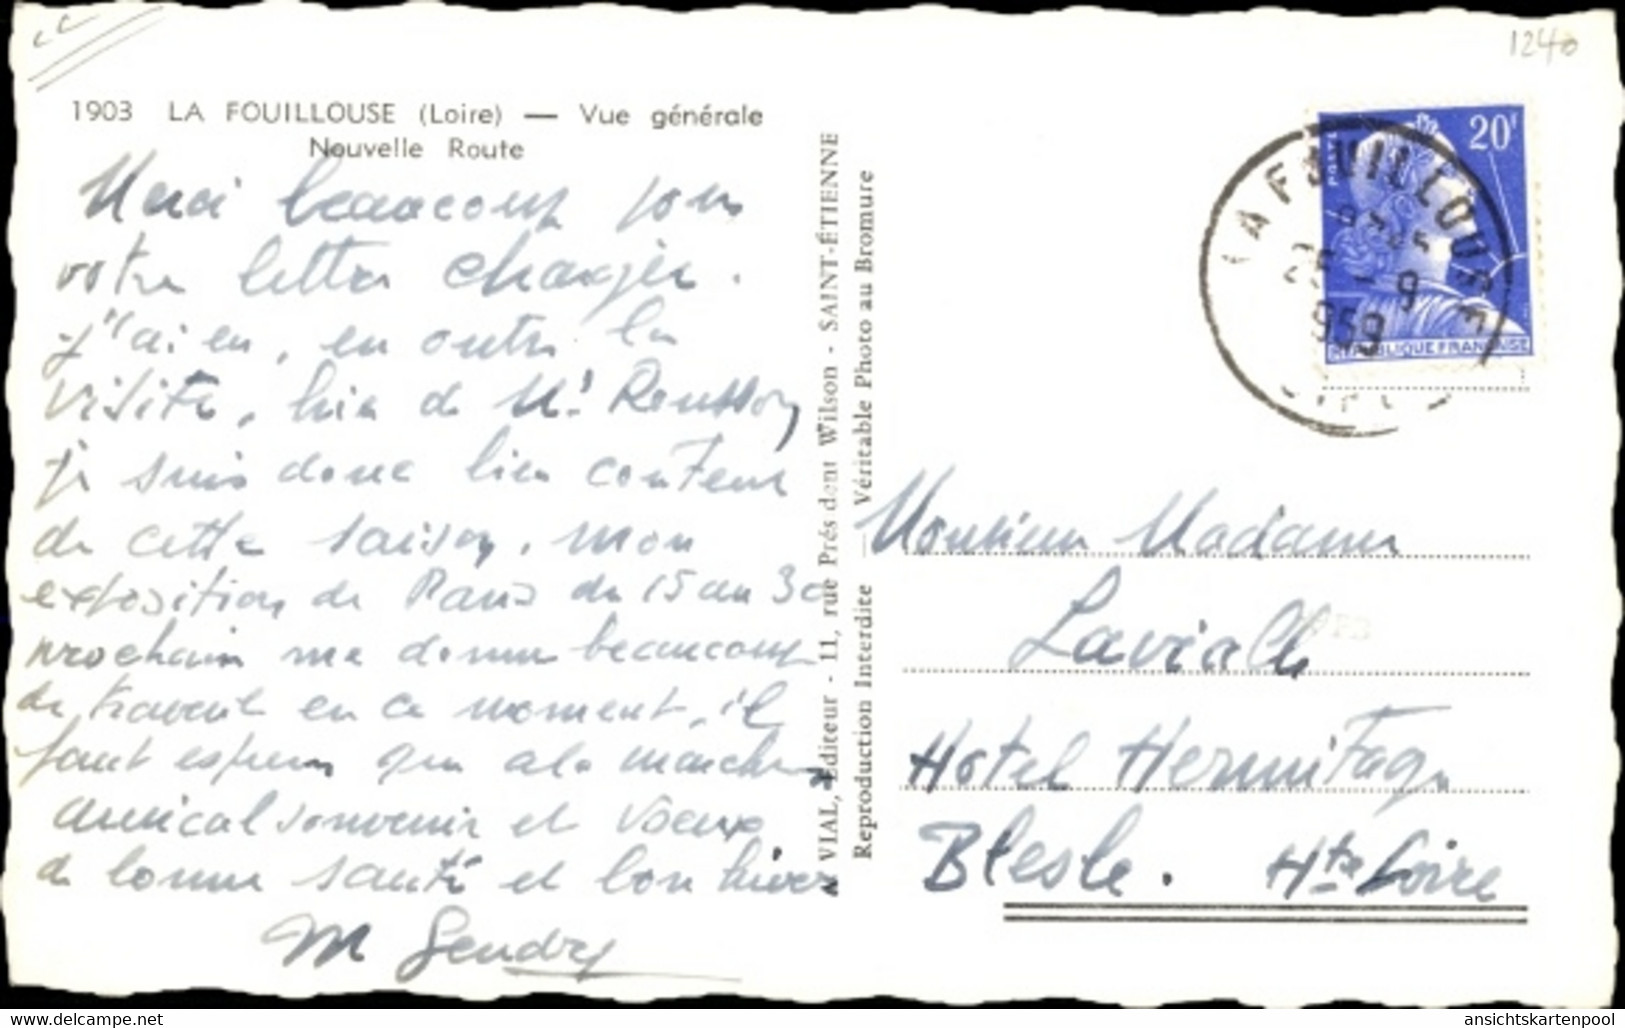 1240
1903 LA FOUILLOUSE (Loire) — Vue générale
Nouvelle Route
Merci beaucoup pour
votre lettre chargée.
J'ai eu, en outre la
visite, hier de Mr Rousson
je suis donc bien content
de cette saison, mon
exposition de Paris du 15 au 30
prochain me donne beaucoup
de travail en ce moment, il
faut espérer que ala marchera
amical souvenir et voeux
de bonne santé et bon hiver
M Gendry
A VIAL, Editeur - 11, rue Prés dent Wilson - SAINT-ÉTIENNE
Reproduction Interdite Véritable Photo au Bromure
20F
POSTES
REPUBLIQUE FRANÇAISE
LA FOUILLOUSE
25 - 9
1959
LOIRE
Monsieur Madame
Lavialle
Hotel Hermitage
Blesle. Hte Loire
ansichtskartenpool